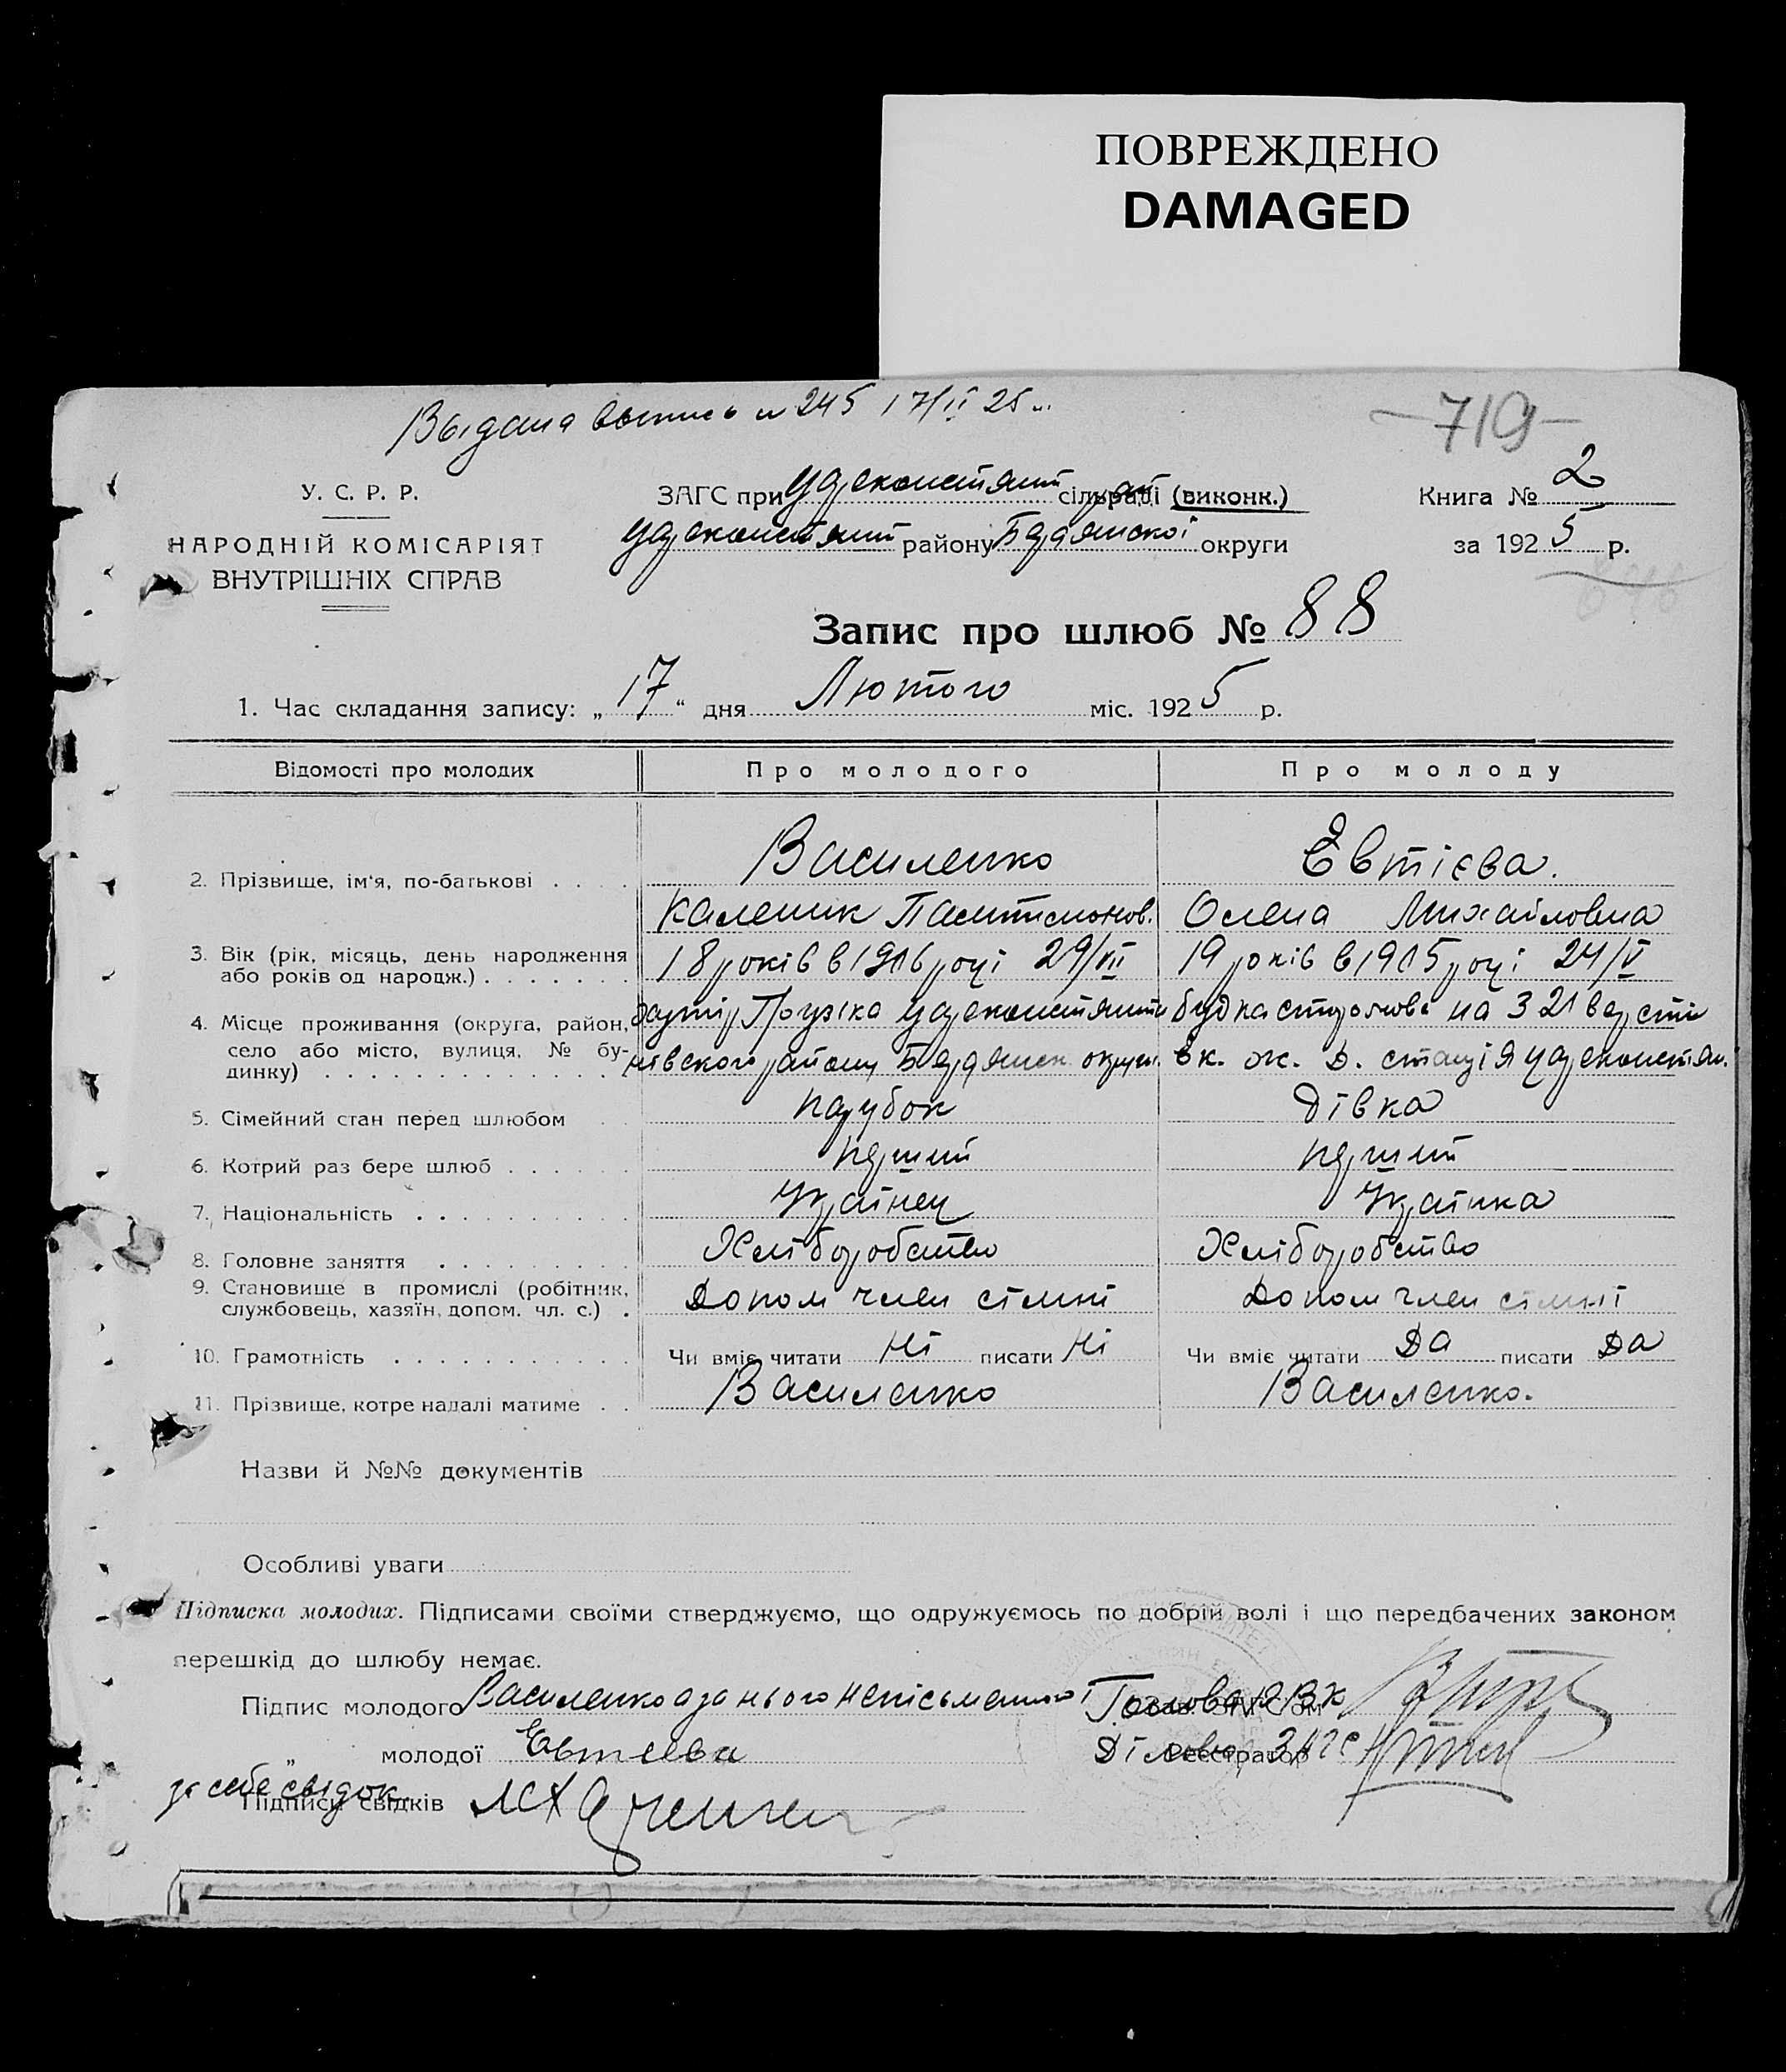 ПОВРЕЖДЕНО
DAMAGED
Выдана выпись № 245 17/II 25
—719—
У. С. Р. Р.
НАРОДНІЙ КОМІСАРІЯТ
ВНУТРІШНІХ СПРАВ
ЗАГС при Цареконстянт сільраді (виконк.)
Цареконстянт району Бердянскої округи
Книга № 2
за 1925 р.
Запис про шлюб № 88
1. Час складання запису: „17“ дня Лютого міс. 1925 р.
Відомості про молодих
Про молодого
Про молоду
2. Прізвище, ім'я, по-батькові . . . .
Василенко
Евтієва.
Каленик Пантимонов.
Олена Михайловна
3. Вік (рік, місяць, день народження
або років од народж.) . . . . . . .
18 років в 1906 році 29/VII
19 років в 1905 році 24/V
4. Місце проживання (округа, район,
село або місто, вулиця, № бу-
динку) . . . . . . . . . . . . . .
хутір Цареконстянти
нівского району Бердянск. округи.
будка на 321 версти
вк. ж. д. станція Цареконстян.
5. Сімейний стан перед шлюбом . .
парубок
дівка
6. Котрий раз бере шлюб . . . . . .
перший
перший
7. Національність . . . . . . . . . .
Українец
Українка
8. Головне заняття . . . . . . . . .
Хліборобство
Хліборобство
9. Становище в промислі (робітник,
службовець, хазяїн, допом. чл. с.) .
Допом член сімиї
Допом член сімиї
10. Грамотність . . . . . . . . . . .
Чи вміє читати Ні писати Ні
Чи вміє читати Да писати Да
11. Прізвище, котре надалі матиме . .
Василенко
Василенко.
Назви й №№ документів
Особливі уваги
Підписка молодих. Підписами своїми стверджуємо, що одружуємось по добрій волі і що передбачених законом
перешкід до шлюбу немає.
Підпис молодого Василенко а за нього неписьменного і
Голова РВК
„ молодої Евтеева
Діловод ЗАГС
Реєстратор
за себе свідок
Підписи свідків